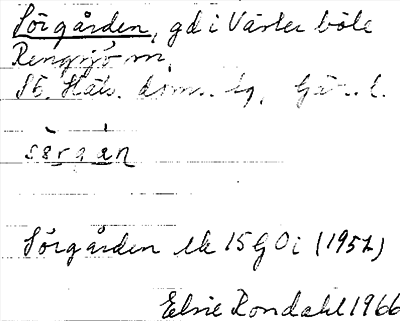 Sörgården, gd i Västerböle
Rengsjö sn,
SÖ. Häls. doms. tg, Gävl. l.
sǿrgàṇ
Sörgården ek 15 G O i (1957)
Elsie Rondahl 1966